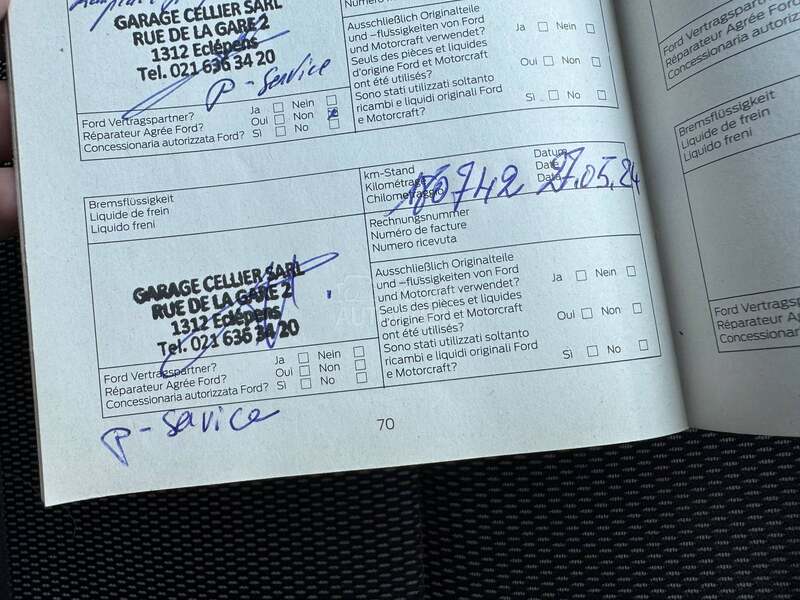 GARAGE CELLIER SARL
RUE DE LA GARE 2
1312 Eclépens
Tel. 021 636 34 20
P-Service
Ford Vertragspartner? Ja Nein
Réparateur Agrée Ford? Oui Non
Concessionaria autorizzata Ford? Sì No
Ausschließlich Originalteile
und -flüssigkeiten von Ford
und Motorcraft verwendet? Ja Nein
Seuls des pièces et liquides
d'origine Ford et Motorcraft Oui Non
ont été utilisés?
Sono stati utilizzati soltanto
ricambi e liquidi originali Ford Sì No
e Motorcraft?
Bremsflüssigkeit
Liquide de frein
Liquido freni
km-Stand
Kilométrage
Chilometraggio
Datum
Date
Data
27.05.24
Rechnungsnummer
Numéro de facture
Numero ricevuta
GARAGE CELLIER SARL
RUE DE LA GARE 2
1312 Eclépens
Tel. 021 636 34 20
Ford Vertragspartner? Ja Nein
Réparateur Agrée Ford? Oui Non
Concessionaria autorizzata Ford? Sì No
Ausschließlich Originalteile
und -flüssigkeiten von Ford
und Motorcraft verwendet? Ja Nein
Seuls des pièces et liquides
d'origine Ford et Motorcraft
ont été utilisés? Oui Non
Sono stati utilizzati soltanto
ricambi e liquidi originali Ford
e Motorcraft? Sì No
P-Service
70
Ford Vertragspartn
Réparateur Agrée
Concessionaria autoriz
Bremsflüssigkeit
Liquide de frein
Liquido freni
Ford Vertragspar
Réparateur Agrée
Concessionaria a